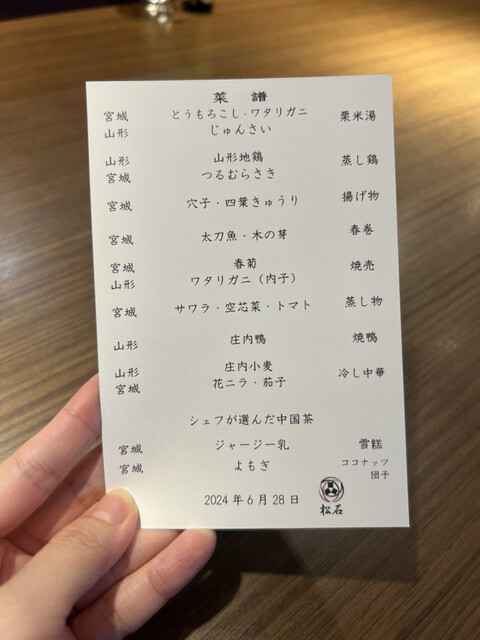 菜譜
宮城 とうもろこし・ワタリガニ 粟米湯
山形 じゅんさい
山形 山形地鶏 蒸し鶏
宮城 つるむらさき
宮城 穴子・四葉きゅうり 揚げ物
宮城 太刀魚・木の芽 春巻
宮城 春菊 焼売
山形 ワタリガニ（内子）
宮城 サワラ・空芯菜・トマト 蒸し物
山形 庄内鴨 焼鴨
山形 庄内小麦 冷し中華
宮城 花ニラ・茄子
シェフが選んだ中国茶
宮城 ジャージー乳 雪糕
宮城 よもぎ ココナッツ
団子
2024年6月28日 松石